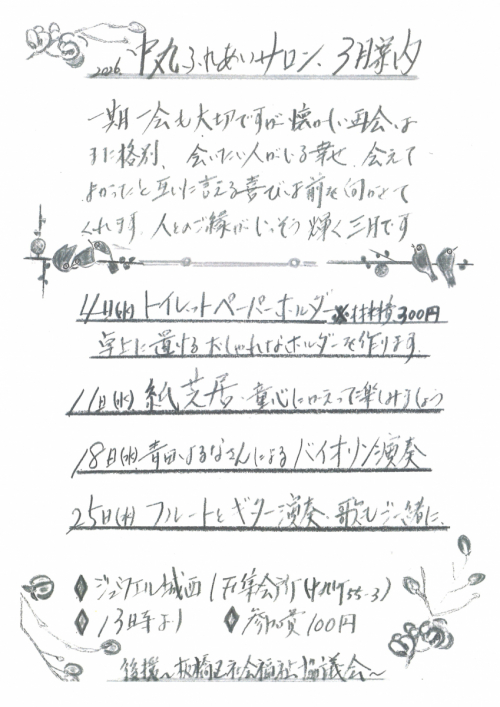 2026. 中丸ふれあいサロン、3月案内
一期一会も大切ですが懐かしい再会は
更に格別、会いたい人がいる幸せ、会えて
よかったと互いに言える喜びは前を向かせて
くれます。人とのご縁がいっそう輝く三月です
4日(水)トイレットペーパーホルダー ※材料費300円
卓上に置けるおしゃれなホルダーを作ります
11日(水)紙芝居・童心にかえって楽しみましょう
18日(水)青田はるなさんによるバイオリン演奏
25日(水)フルートとギター演奏・歌もご一緒に
♦ジュウエル城西1F集会所(中丸町55-3)
♦13時より ♦参加費100円
後援～板橋区社会福祉協議会～